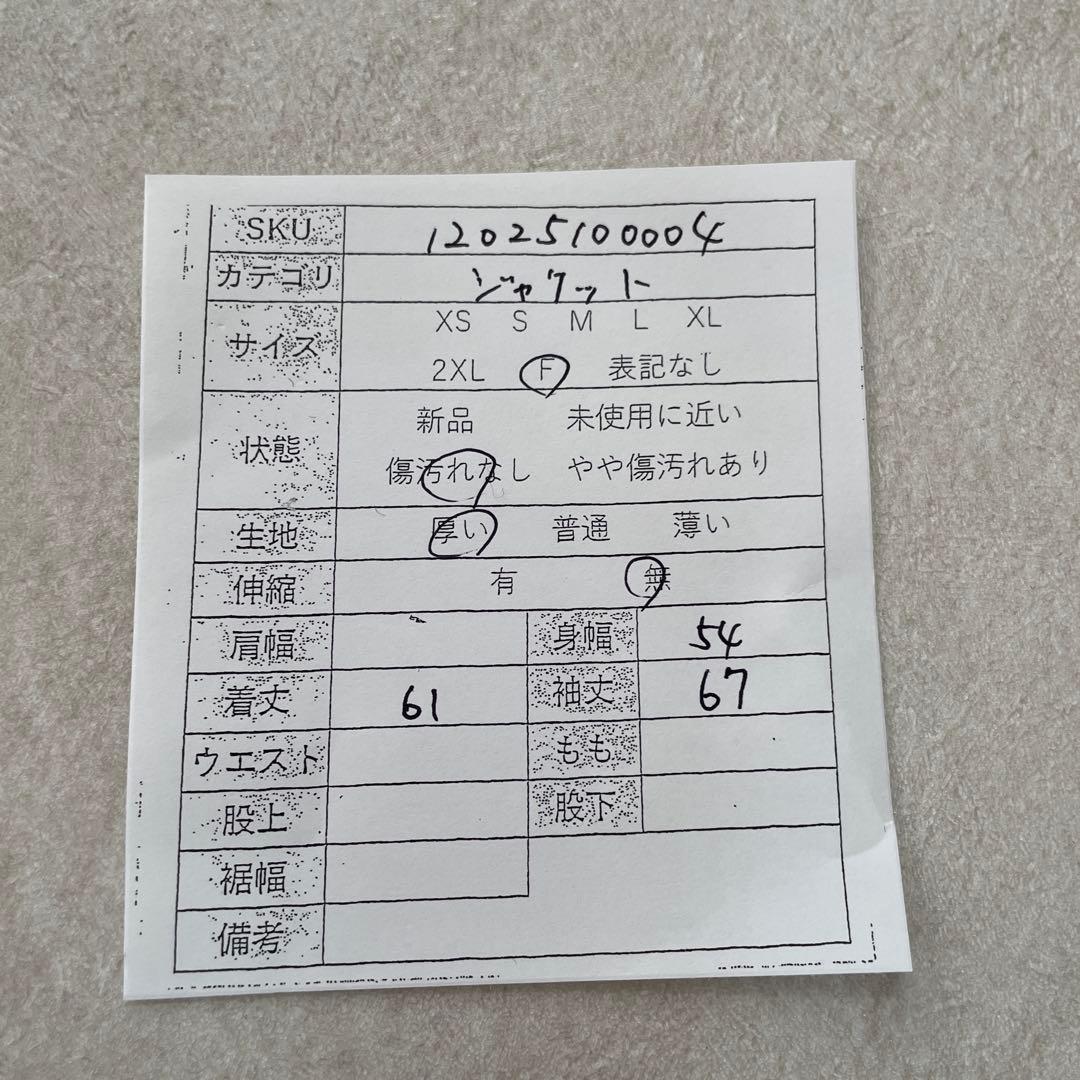 SKU 12025100004
カテゴリ ジャケット
サイズ XS S M L XL
2XL F 表記なし
状態 新品 未使用に近い
傷汚れなし やや傷汚れあり
生地 厚い 普通 薄い
伸縮 有 無
肩幅 身幅 54
着丈 61 袖丈 67
ウエスト もも
股上 股下
裾幅
備考